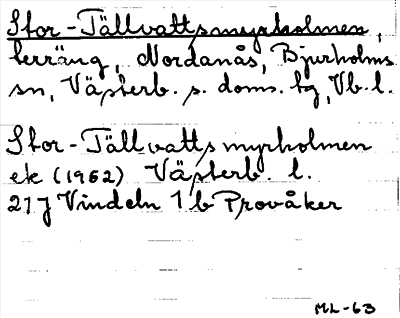 Stor-Tällvattsmyrholmen,
terräng, Nordanås, Bjurholms
sn, Västerb. s. doms. tg, Vb. l.
Stor-Tällvattsmyrholmen
ek (1962) Västerb. l.
21J Vindeln 1b Provåker
ML-63